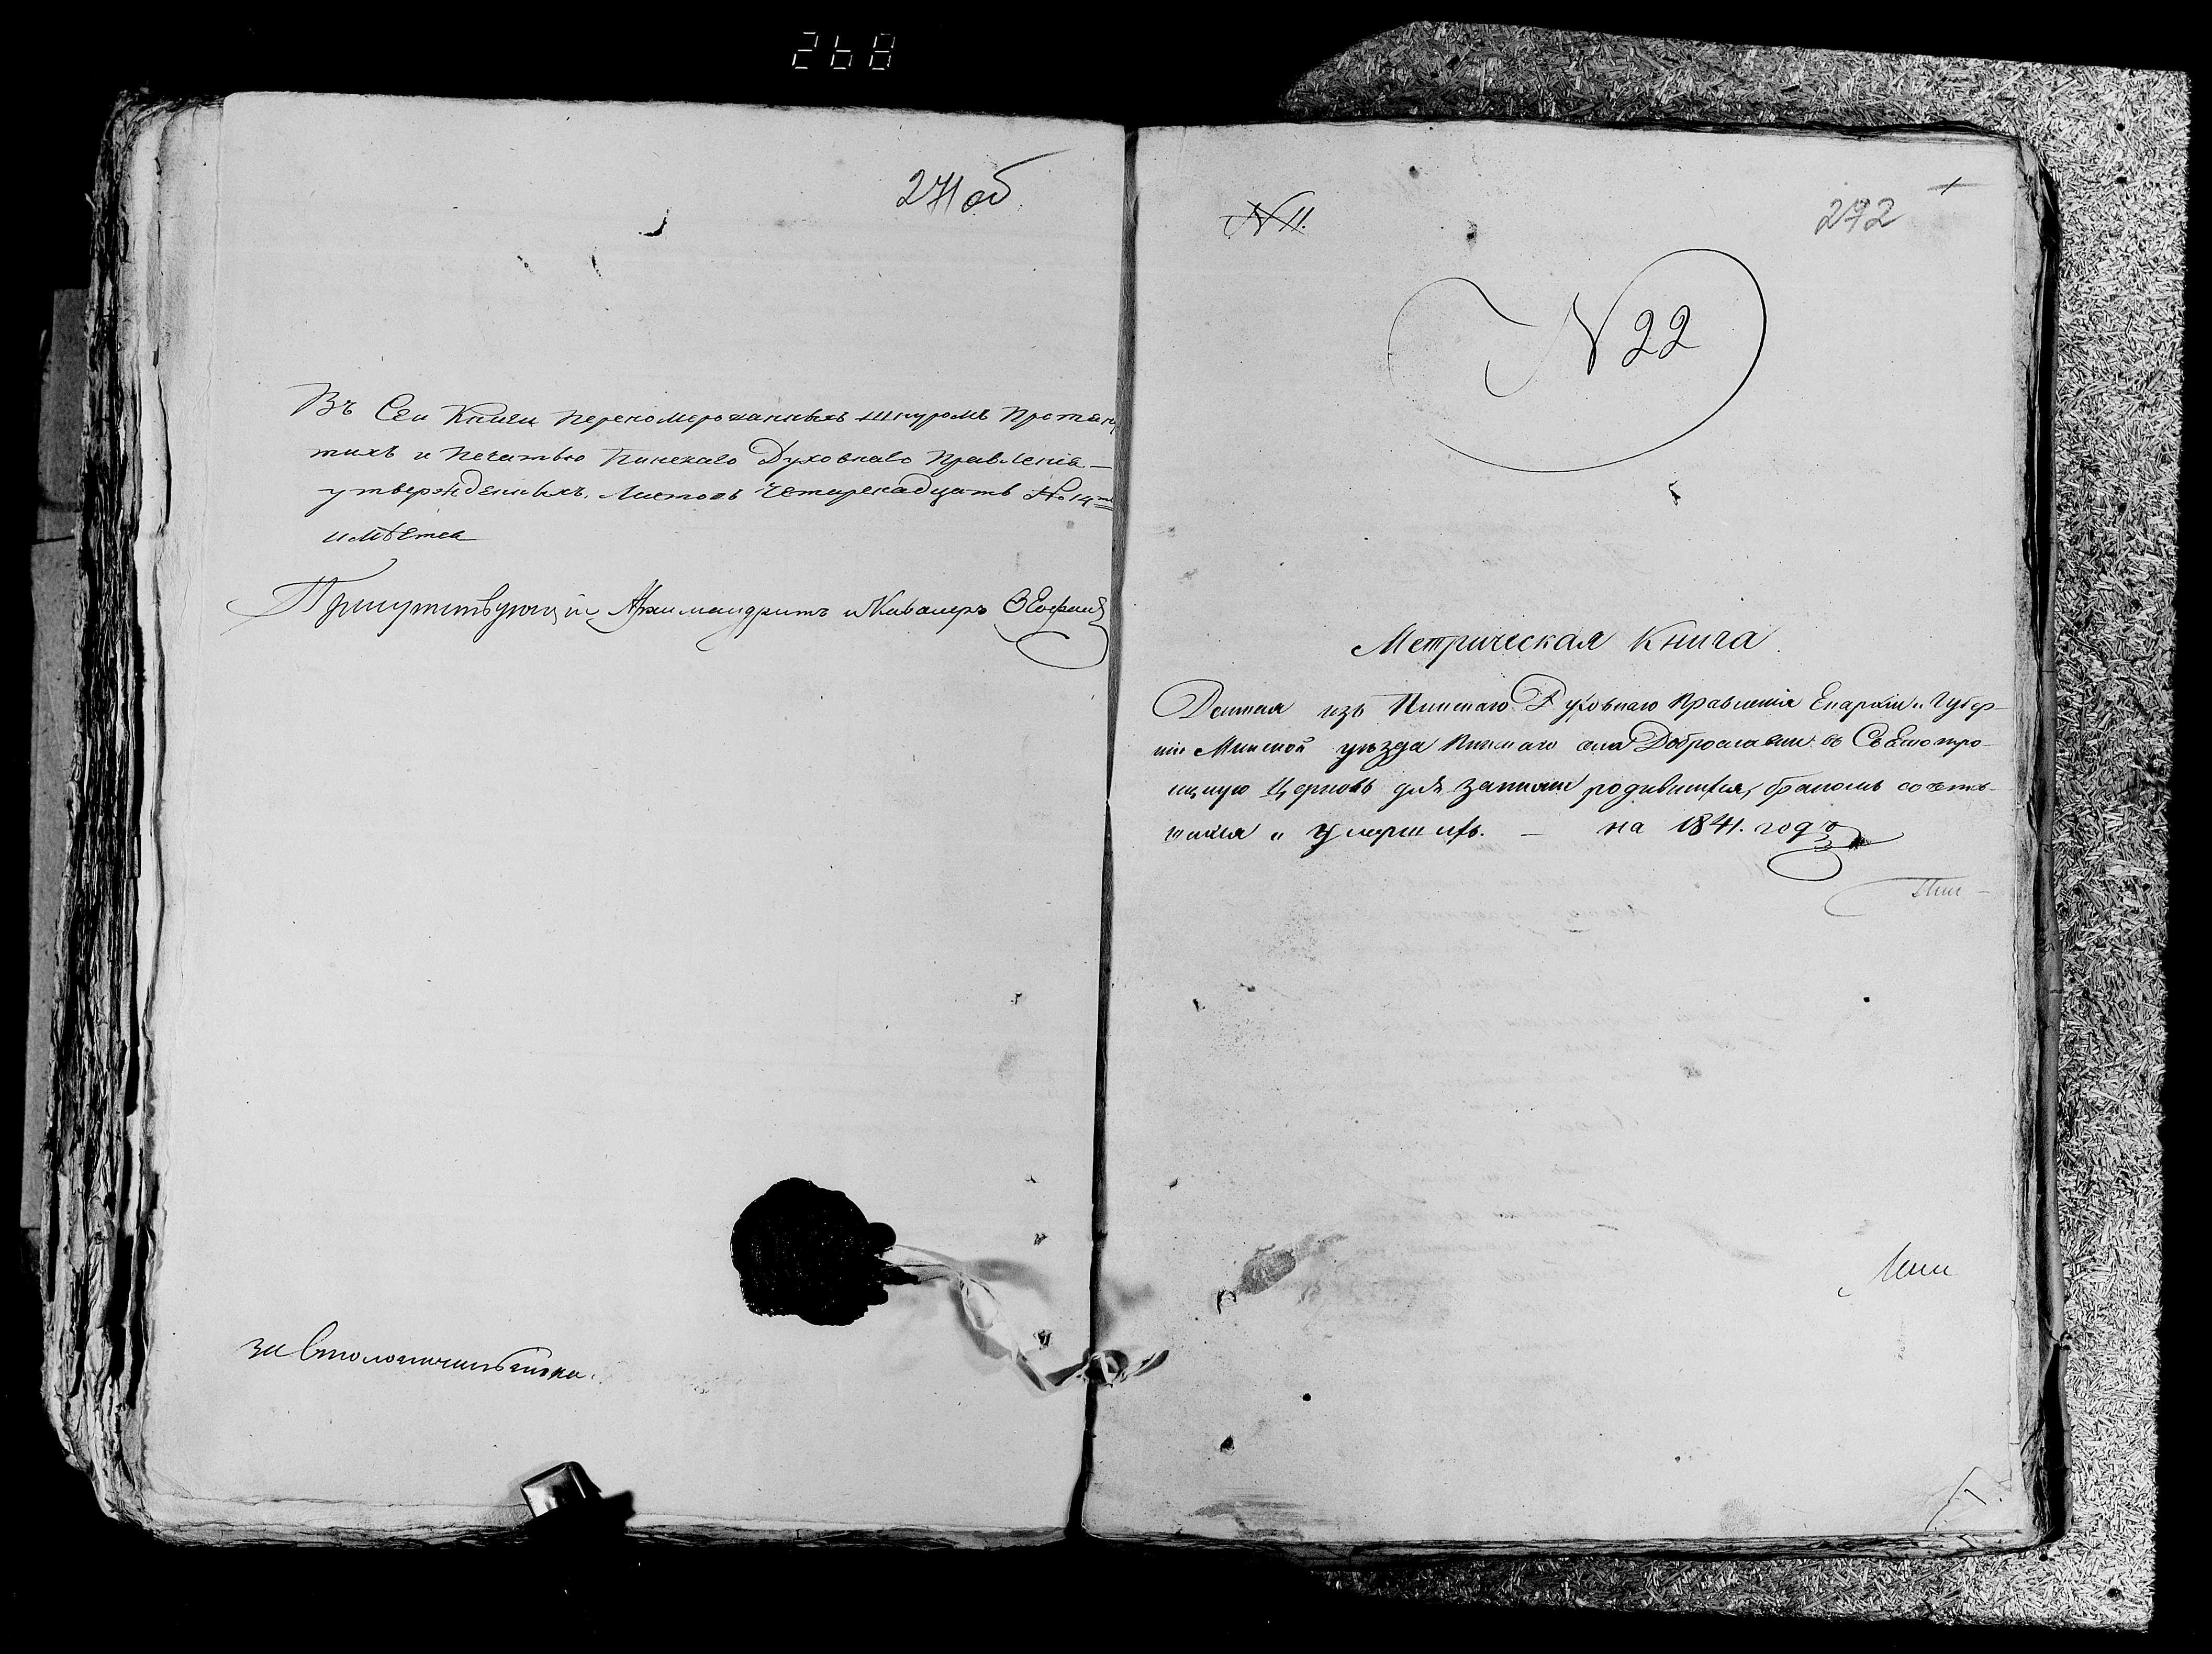 268
271 об
Въ Сеи Книги перекомерованныхъ шнуромъ Протяну
тихъ и печатью Пинскаго Духовнаго Правленія —
утвержденныхъ. Листовъ Четырнадцать № 14
имѣется
Присутствующій Архимандритъ и Кавалеръ
за Столоначальника.
N 11.
272
N 22
Метрическая Книга
Данная изъ Пинскаго Духовнаго Правленія Епархіи и Губер-
ніи Минской уѣзда Пинскаго села Доброславки въ Свято тро-
ицкую Церковь для записки родившихся, бракомъ сочета-
шихся и умершихъ. — на 1841. годъ
Пин-